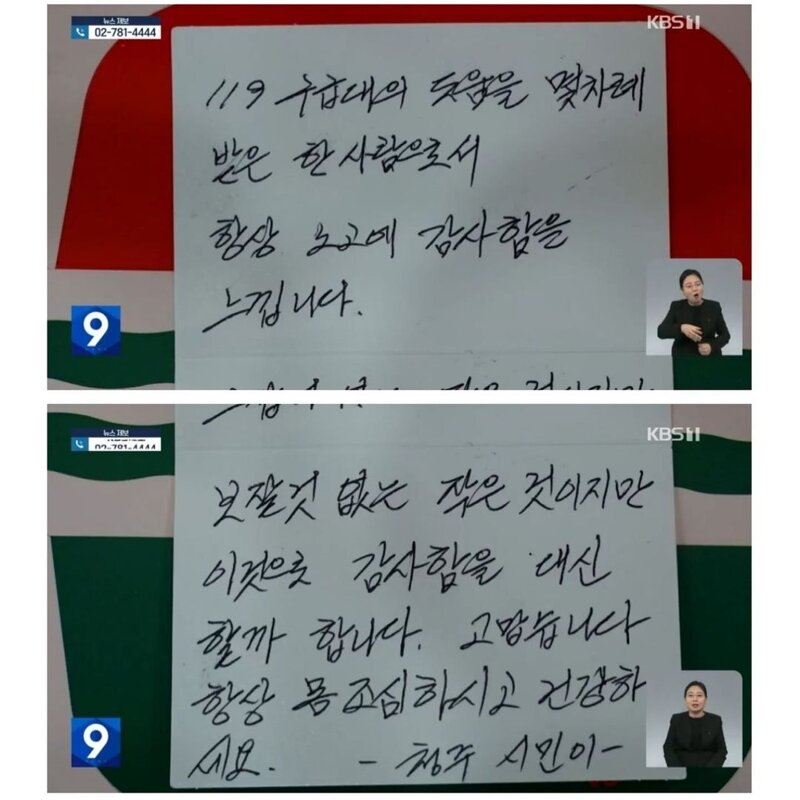 뉴스 제보
02-781-4444
KBS1
119 구급대의 도움을 몇차례
받은 한 사람으로서
항상 노고에 감사함을
느낍니다.
9
뉴스 제보
02-781-4444
KBS1
보잘것 없는 작은 것이지만
이것으로 감사함을 대신
할까 합니다. 고맙습니다
항상 몸조심하시고 건강하
세요. - 청주 시민이 -
9